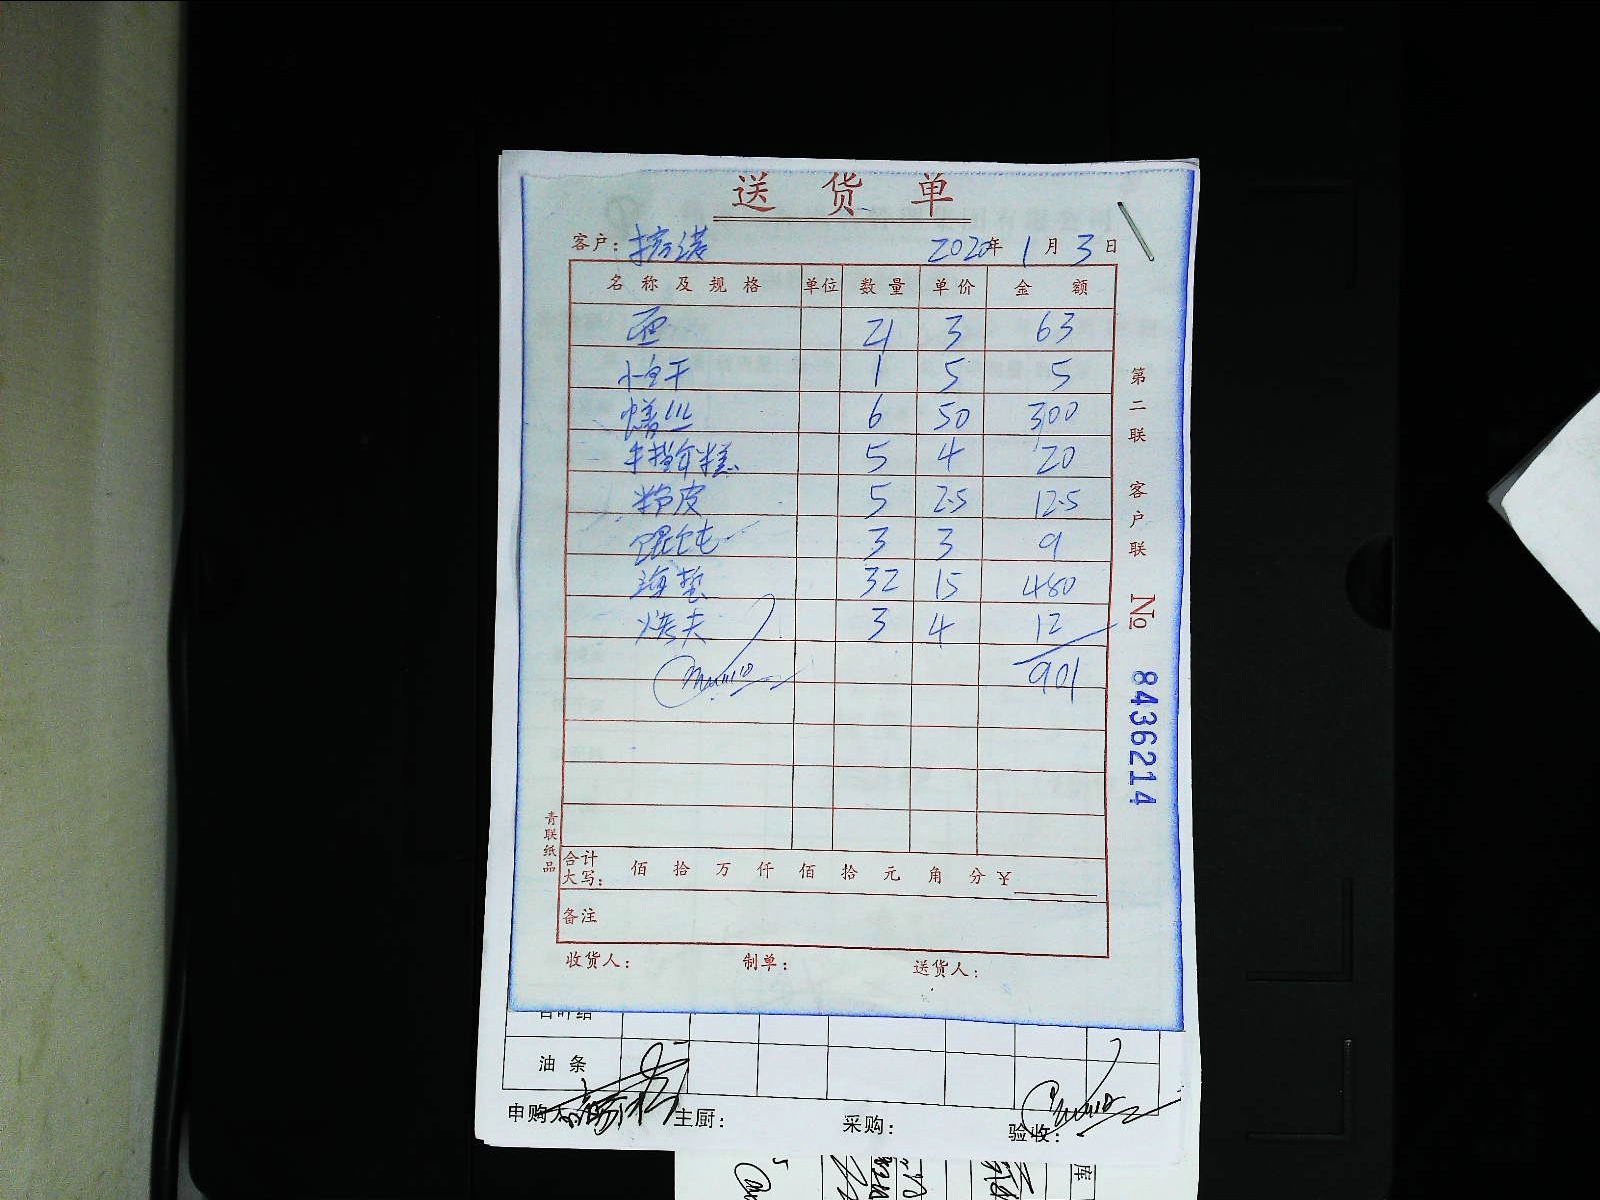 送货单
客户: 2020年1月3日
名称及规格 单位 数量 单价 金额
21 3 63
1 5 5
6 50 300
5 4 20
粉皮 5 2.5 12.5
馄饨 3 3 9
海蜇 32 15 480
烤夫 3 4 12
901
第二联 客户联
No 8436214
青联纸品
合计大写: 佰 拾 万 仟 佰 拾 元 角 分 ¥
备注
收货人: 制单: 送货人:
百叶结
油条
申购人 主厨: 采购: 验收:
库